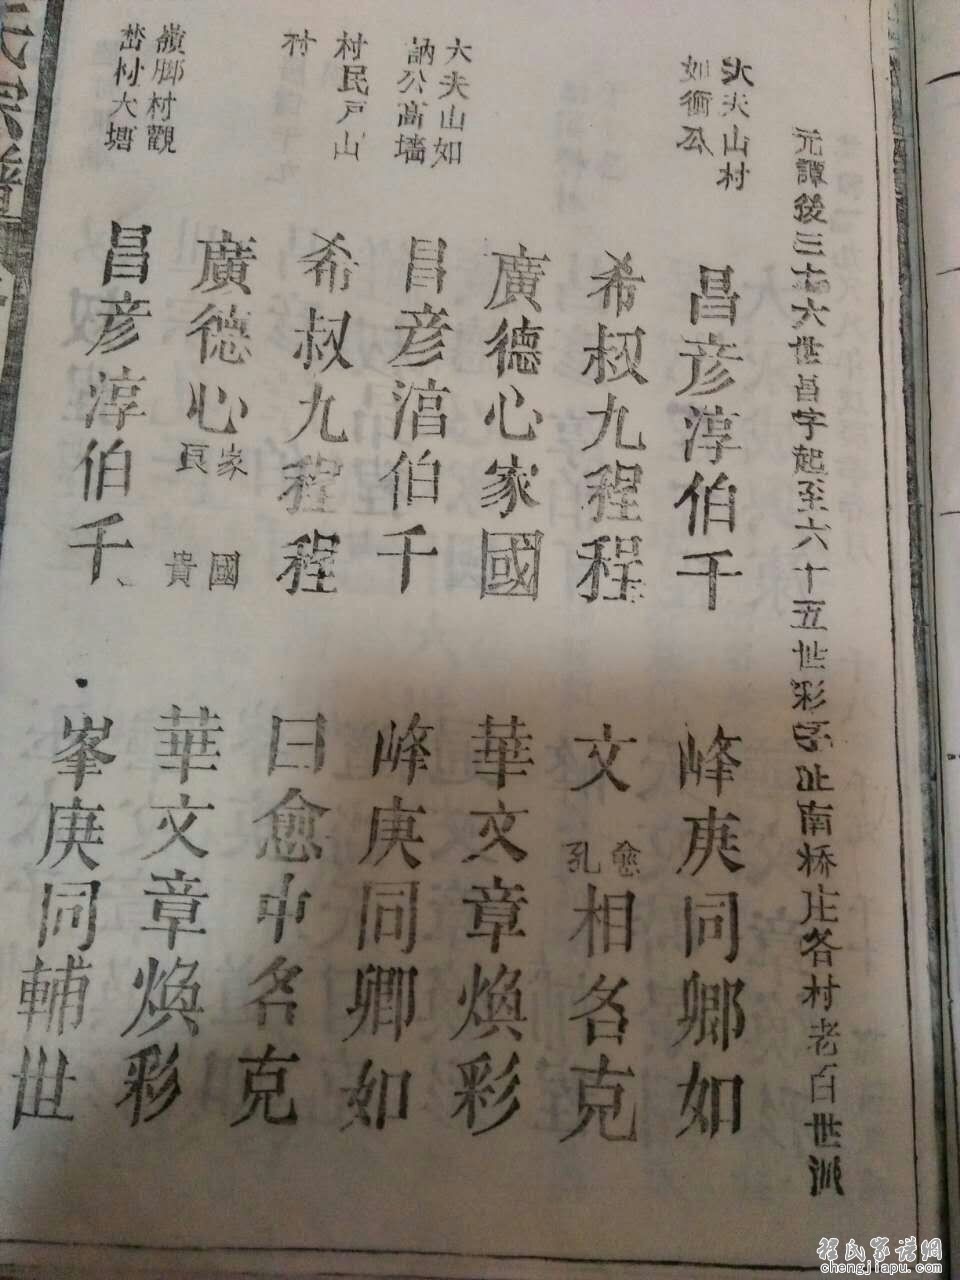 元譚後三十六世昌字起至六十五世彩字止南桥庄各村老百世派
大夫山村
如衝公
昌彦淳伯千
峰庚同卿如
希叔九程程
文愈孔相名克
廣德心家國
華文章煥彩
大夫山如
訥公高墻
昌彦湻伯千
峰庚同卿如
村民戸山
村
希叔九程程
曰愈中名克
廣德心家良國貴
華文章煥彩
嶺脚村觀
嵆村大塘
昌彦淳伯千
峯庚同輔世
氏宗譜
程氏家谱網
chengjiapu.com